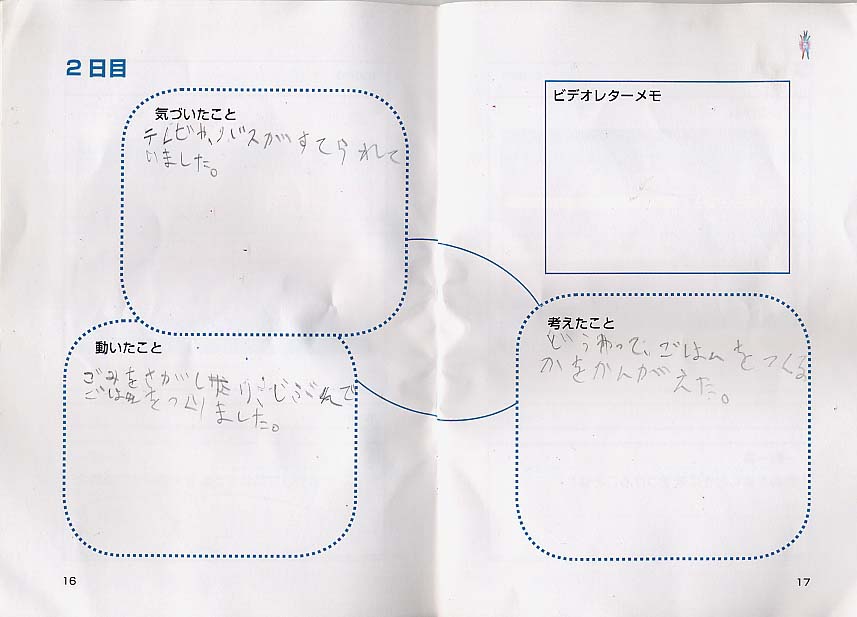 2日目
気づいたこと
テレビや、バスがすてられて
いました。
動いたこと
ごみをさがし
ごはんをつくりました。
16
ビデオレターメモ
考えたこと
どうやって、ごはんをつくる
かをかんがえた。
17